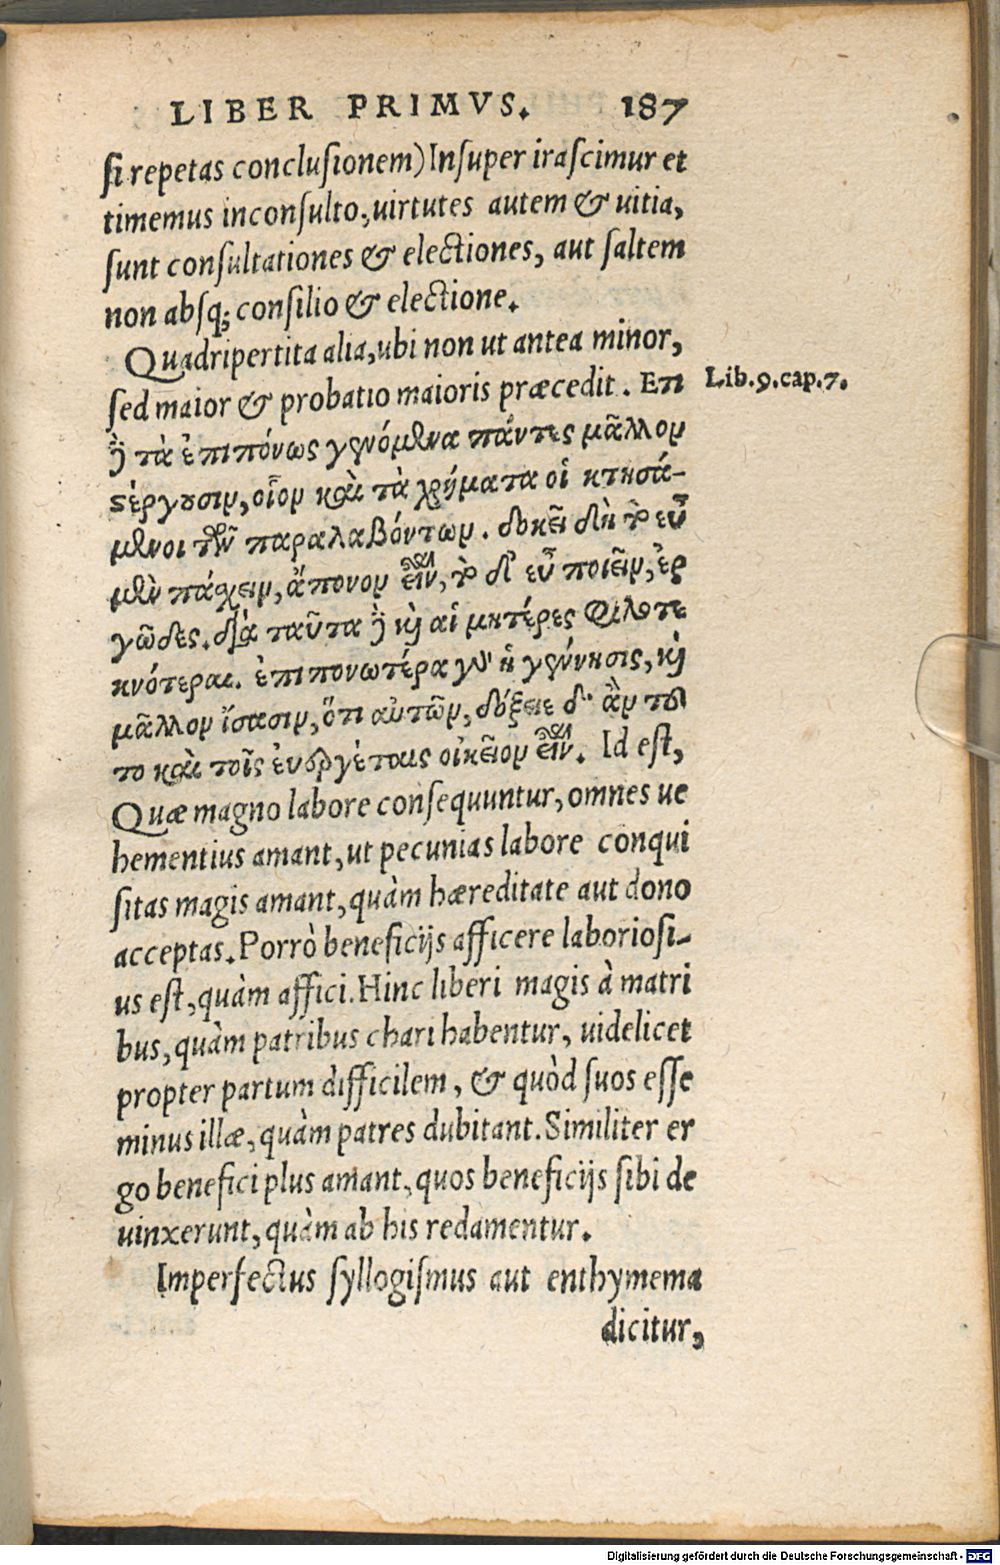 LIBER PRIMVS. 187
si repetas conclusionem) Insuper irascimur et
timemus inconsulto, uirtutes autem & uitia,
sunt consultationes & electiones, aut saltem
non absq; consilio & electione.
Quadripertita alia, ubi non ut antea minor,
sed maior & probatio maioris præcedit. Επι
Lib. 9. cap. 7.
ἢ τὰ ἐπιπόνως γενόμενα πάντες μᾶλλον
στέργουσιν, οἷον καὶ τὰ χρήματα οἱ κτησά-
μενοι τῶν παραλαβόντων. δοκεῖ δὴ τὸ εὖ
μὲν πάχειν, ἄπονον εἶναι, τὸ δ' εὖ ποιεῖν, ἐρ
γῶδες. διὰ ταῦτα ἢ καὶ αἱ μητέρες φιλοτε
κνότεραι. ἐπιπονωτέρα γὰρ ἡ γέννησις, καὶ
μᾶλλον ἴσασιν, ὅτι αὐτῶν, δόξειε δ' ἂν τοῦ
το καὶ τοῖς ἐυεργέταις οἰκεῖον εἶναι. Id est,
Quæ magno labore consequuntur, omnes ue
hementius amant, ut pecunias labore conqui
sitas magis amant, quàm hæreditate aut dono
acceptas. Porrò beneficijs afficere laboriosi-
us est, quàm affici. Hinc liberi magis à matri
bus, quàm patribus chari habentur, uidelicet
propter partum difficilem, & quòd suos esse
minus illæ, quàm patres dubitant. Similiter er
go benefici plus amant, quos beneficijs sibi de
uinxerunt, quàm ab his redamentur.
Imperfectus syllogismus aut enthymema
dicitur,
Digitalisierung gefördert durch die Deutsche Forschungsgemeinschaft - DFG